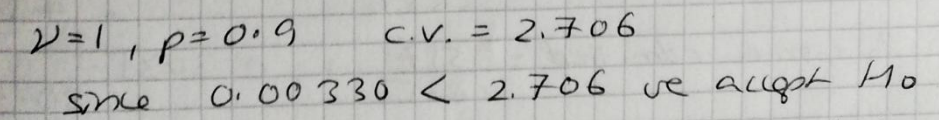 ν=1, p=0.9 c.v. = 2.706
since 0.00330 < 2.706 we accept H0